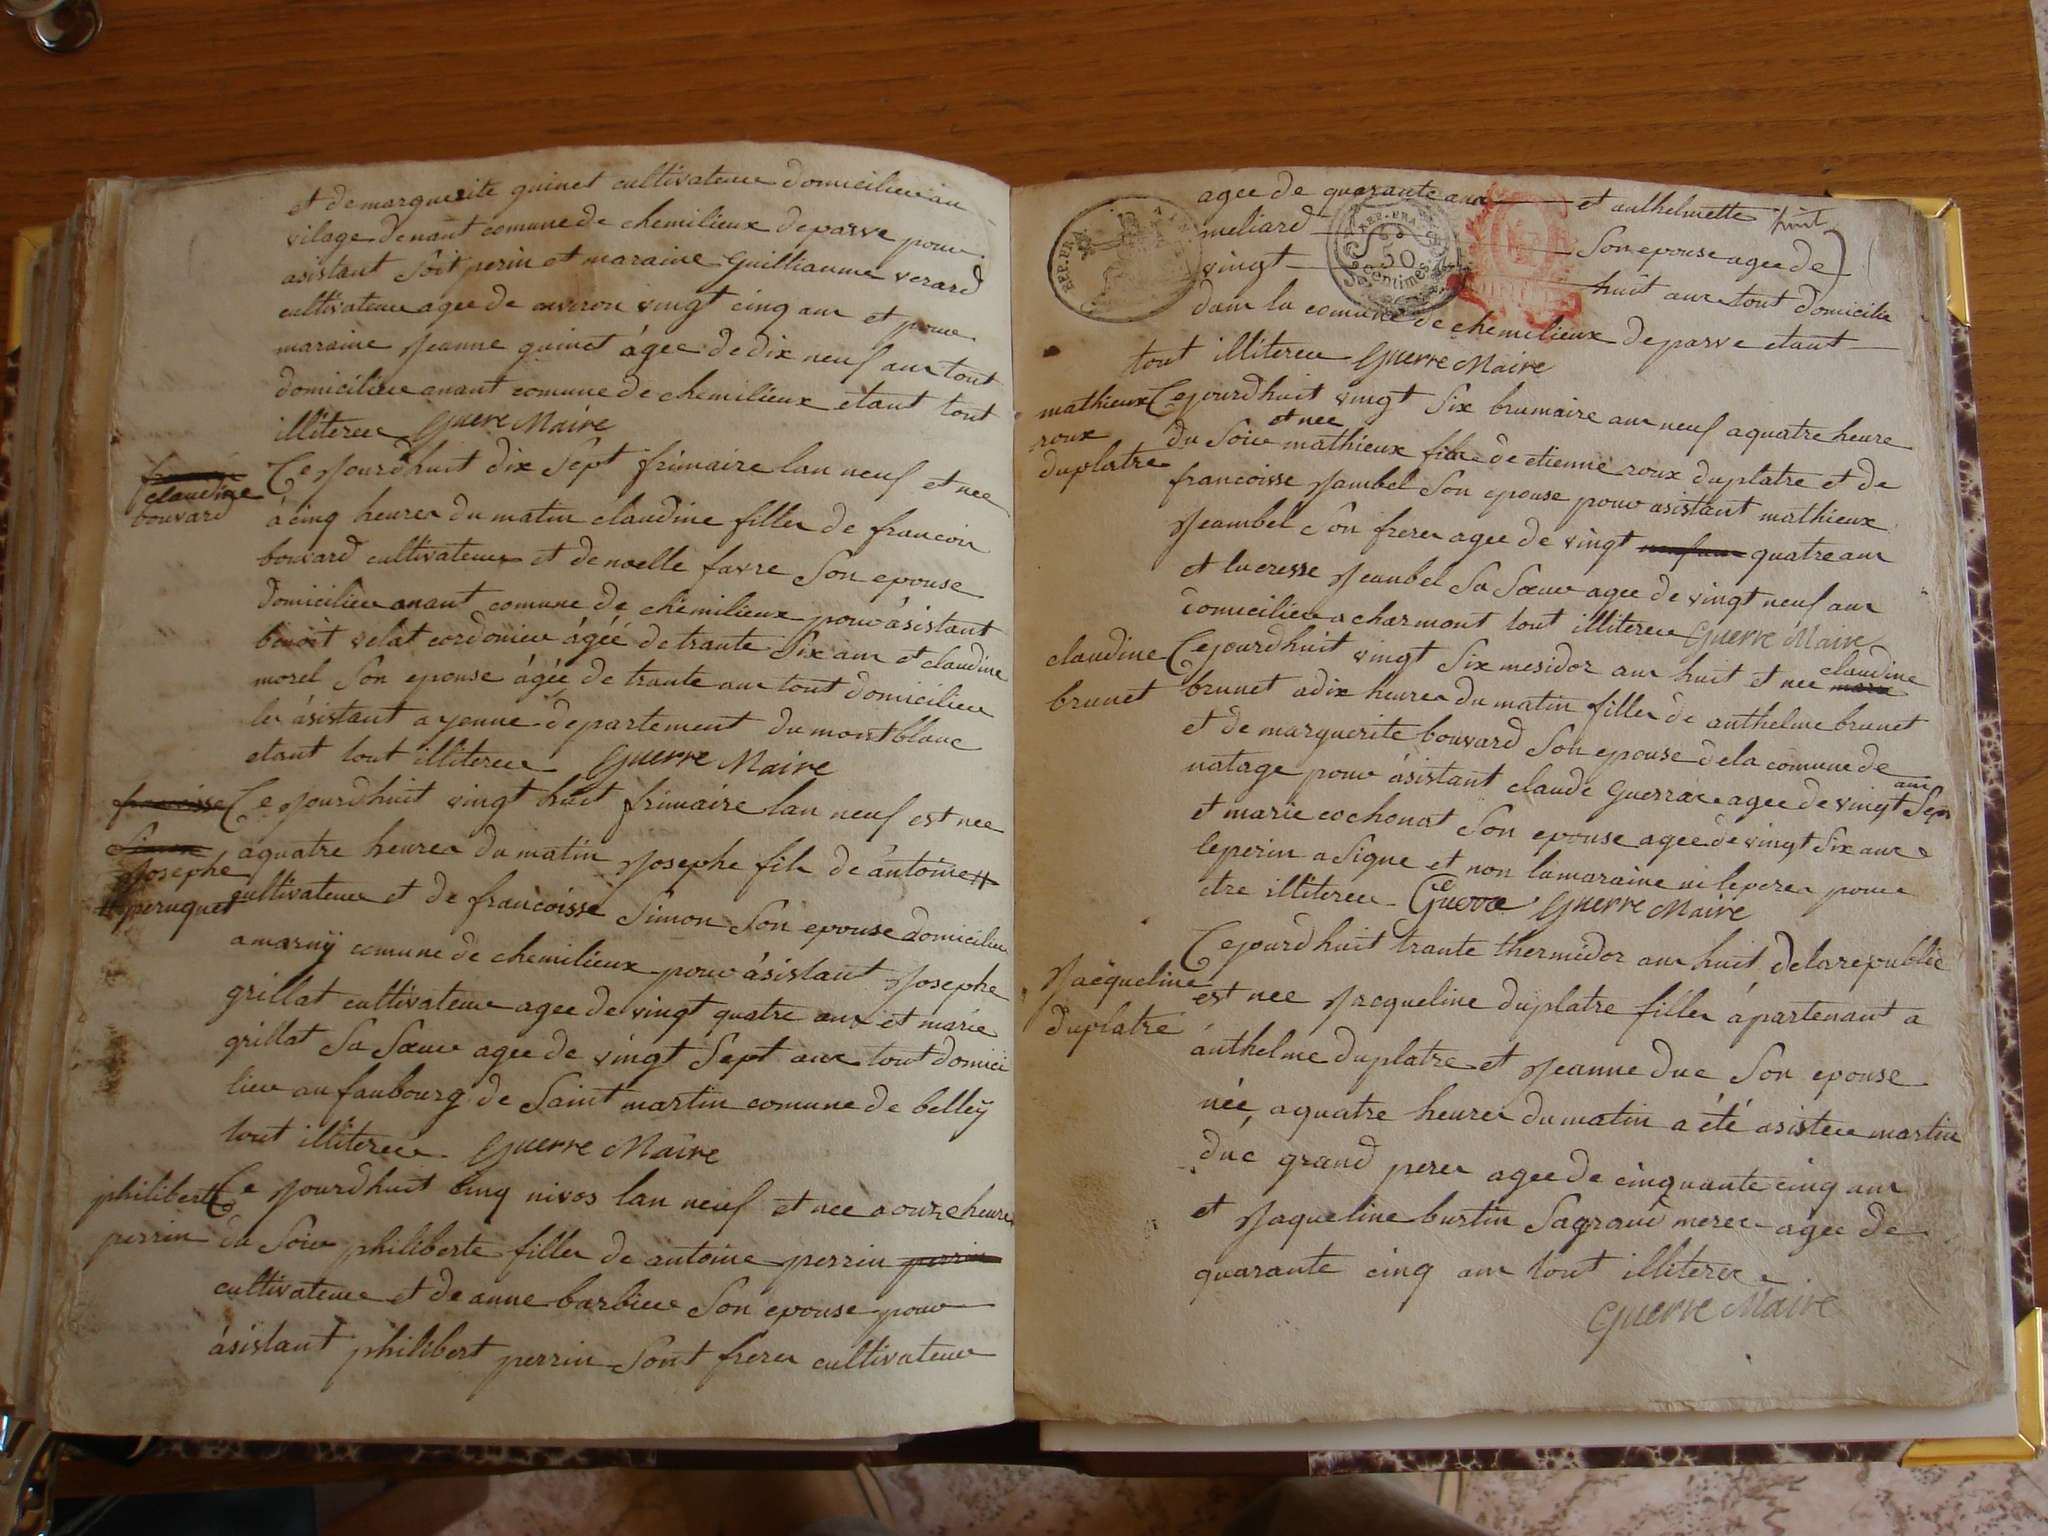 et de marguerite guinet cultivateur domicilieu au
vilage de nant comune de chemilieux de parve pour
asistant soit perin et maraine Guilliaume verard
cultivateur agee de environ vingt cinq an et pour
maraine Jeanne guinet ágee de dix neuf an tout
domicilieu anant comune de chemilieux etant tout
illiteree Guere Maire
claudine bouvard
Ce Jourdhuit dix Sept frimaire lan neuf et nee
à cinq heure du matin claudine fille de francoi
bouvard cultivateur et de noelle favre Son epouse
domicilieu anant comune de chemilieux pour ásistant
benoit velat cordonieu ágéé de trante Six an et claudine
morel Son epouse ágéé de trante an tout domicilieu
le ásistant a yenne departement du montblanc
etant tout illiteree Guerre Maire
francoisse Simon
Josephe peruquet
Ce Jourdhuit vingt huit frimaire lan neuf est nee
a quatre heure du matin Josephe fils de antoine #
cultivateur et de francoisse Simon Son epouse domicilieu
a marnÿ comune de chemilieux pour ásistant Josephe
grillat cultivateur agee de vingt quatre an et marie
grillat Sa Sœur agee de vingt Sept an tout domici
lieu au faubourg de Saint martin comune de belleÿ
tout illiteree Guerre Maire
philiberte perrin
Ce Jourdhuit Cinq nivos lan neuf et nee a onze heure
du Soir philiberte fille de antoine perrin perrin
cultivateur et de anne barbieu Son epouse pour
ásistant philibert perrin Sont frere cultivateur
agee de quarante an et anthelmette
meliard Son epouse agee de
vingt huit an tout domicilie
huit
REP. FRA.
50 centimes
dans la comune de chemilieux de parve etant
tout illiteree Guerre Maire
mathieux roux duplatre
Cejourdhuit vingt Six brumaire an neuf a quatre heure
du Soir et nee mathieux fils de etienne roux duplatre et de
francoisse Jambel Son epouse pour asistant mathieux
Jeambel Son frere agee de vingt neuf an quatre an
et lucresse Jeambel Sa Sœur agee de vingt neuf an
domicilieu a charmont tout illiteree Guerre Maire
claudine brunet
Cejourdhuit vingt Six mesidor an huit et nee marie claudine
brunet a dix heure du matin fille de anthelme brunet
et de marguerite bouvard Son epouse de la comune de
natage pour ásistant claude Guerrae agee de vingt Sept an
et marie cochonat Son epouse agee de vingt Six an
le perin a Signe et non la maraine ni le pere pour
etre illiteree Guerrae Guerre Maire
Jacqueline duplatre
Cejourdhuit trante thermidor an huit de la republic
est nee Jacqueline duplatre fille ápartenant a
ánthelme duplatre et Jeanne duc Son epouse
néé a quatre heure du matin a été asistee martin
duc grand pere agee de cinquante cinq an
et Jaqueline burtin Sa grand mere agee de
quarante cinq an tout illiteree
Guerre Maire